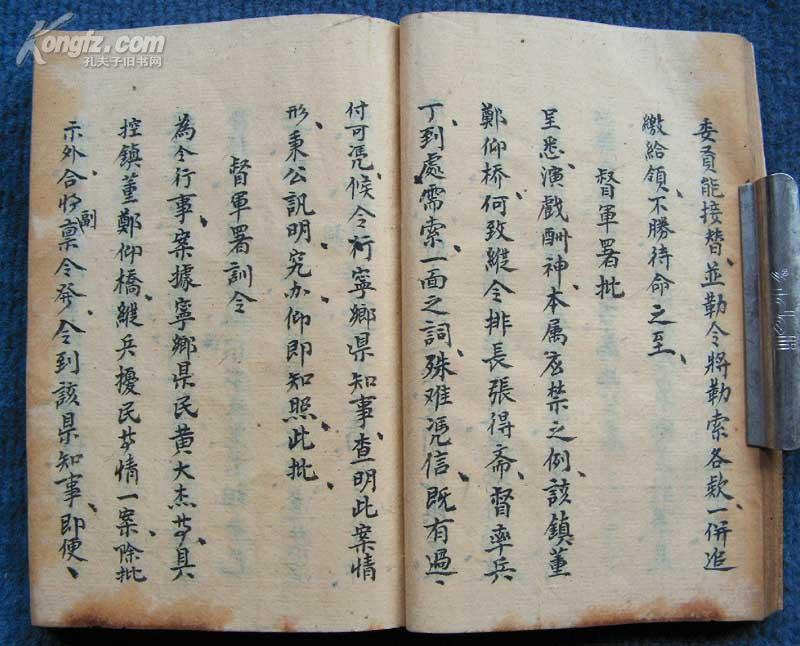 Kongfz.com
孔夫子旧书网
委員能接替、並勒令將勒索各款、一併追
繳給領、不勝待命之至、
督軍署批
呈悉、演戲酬神、本属宜禁之例、該鎮董
鄭仰桥、何致縱令排長張得斋、督率兵
丁、到處需索、一面之詞、殊难凭信、既有過、
付可凭、候令行寧鄉県知事、查明此案情
形、秉公訊明、究办仰即知照、此批、
督軍署訓令
為令行事、案據寧鄉県民黄大杰等具
控鎮董鄭仰橋、縱兵擾民等情一案、除批
示外合将副稟令發、令到該県知事、即便、